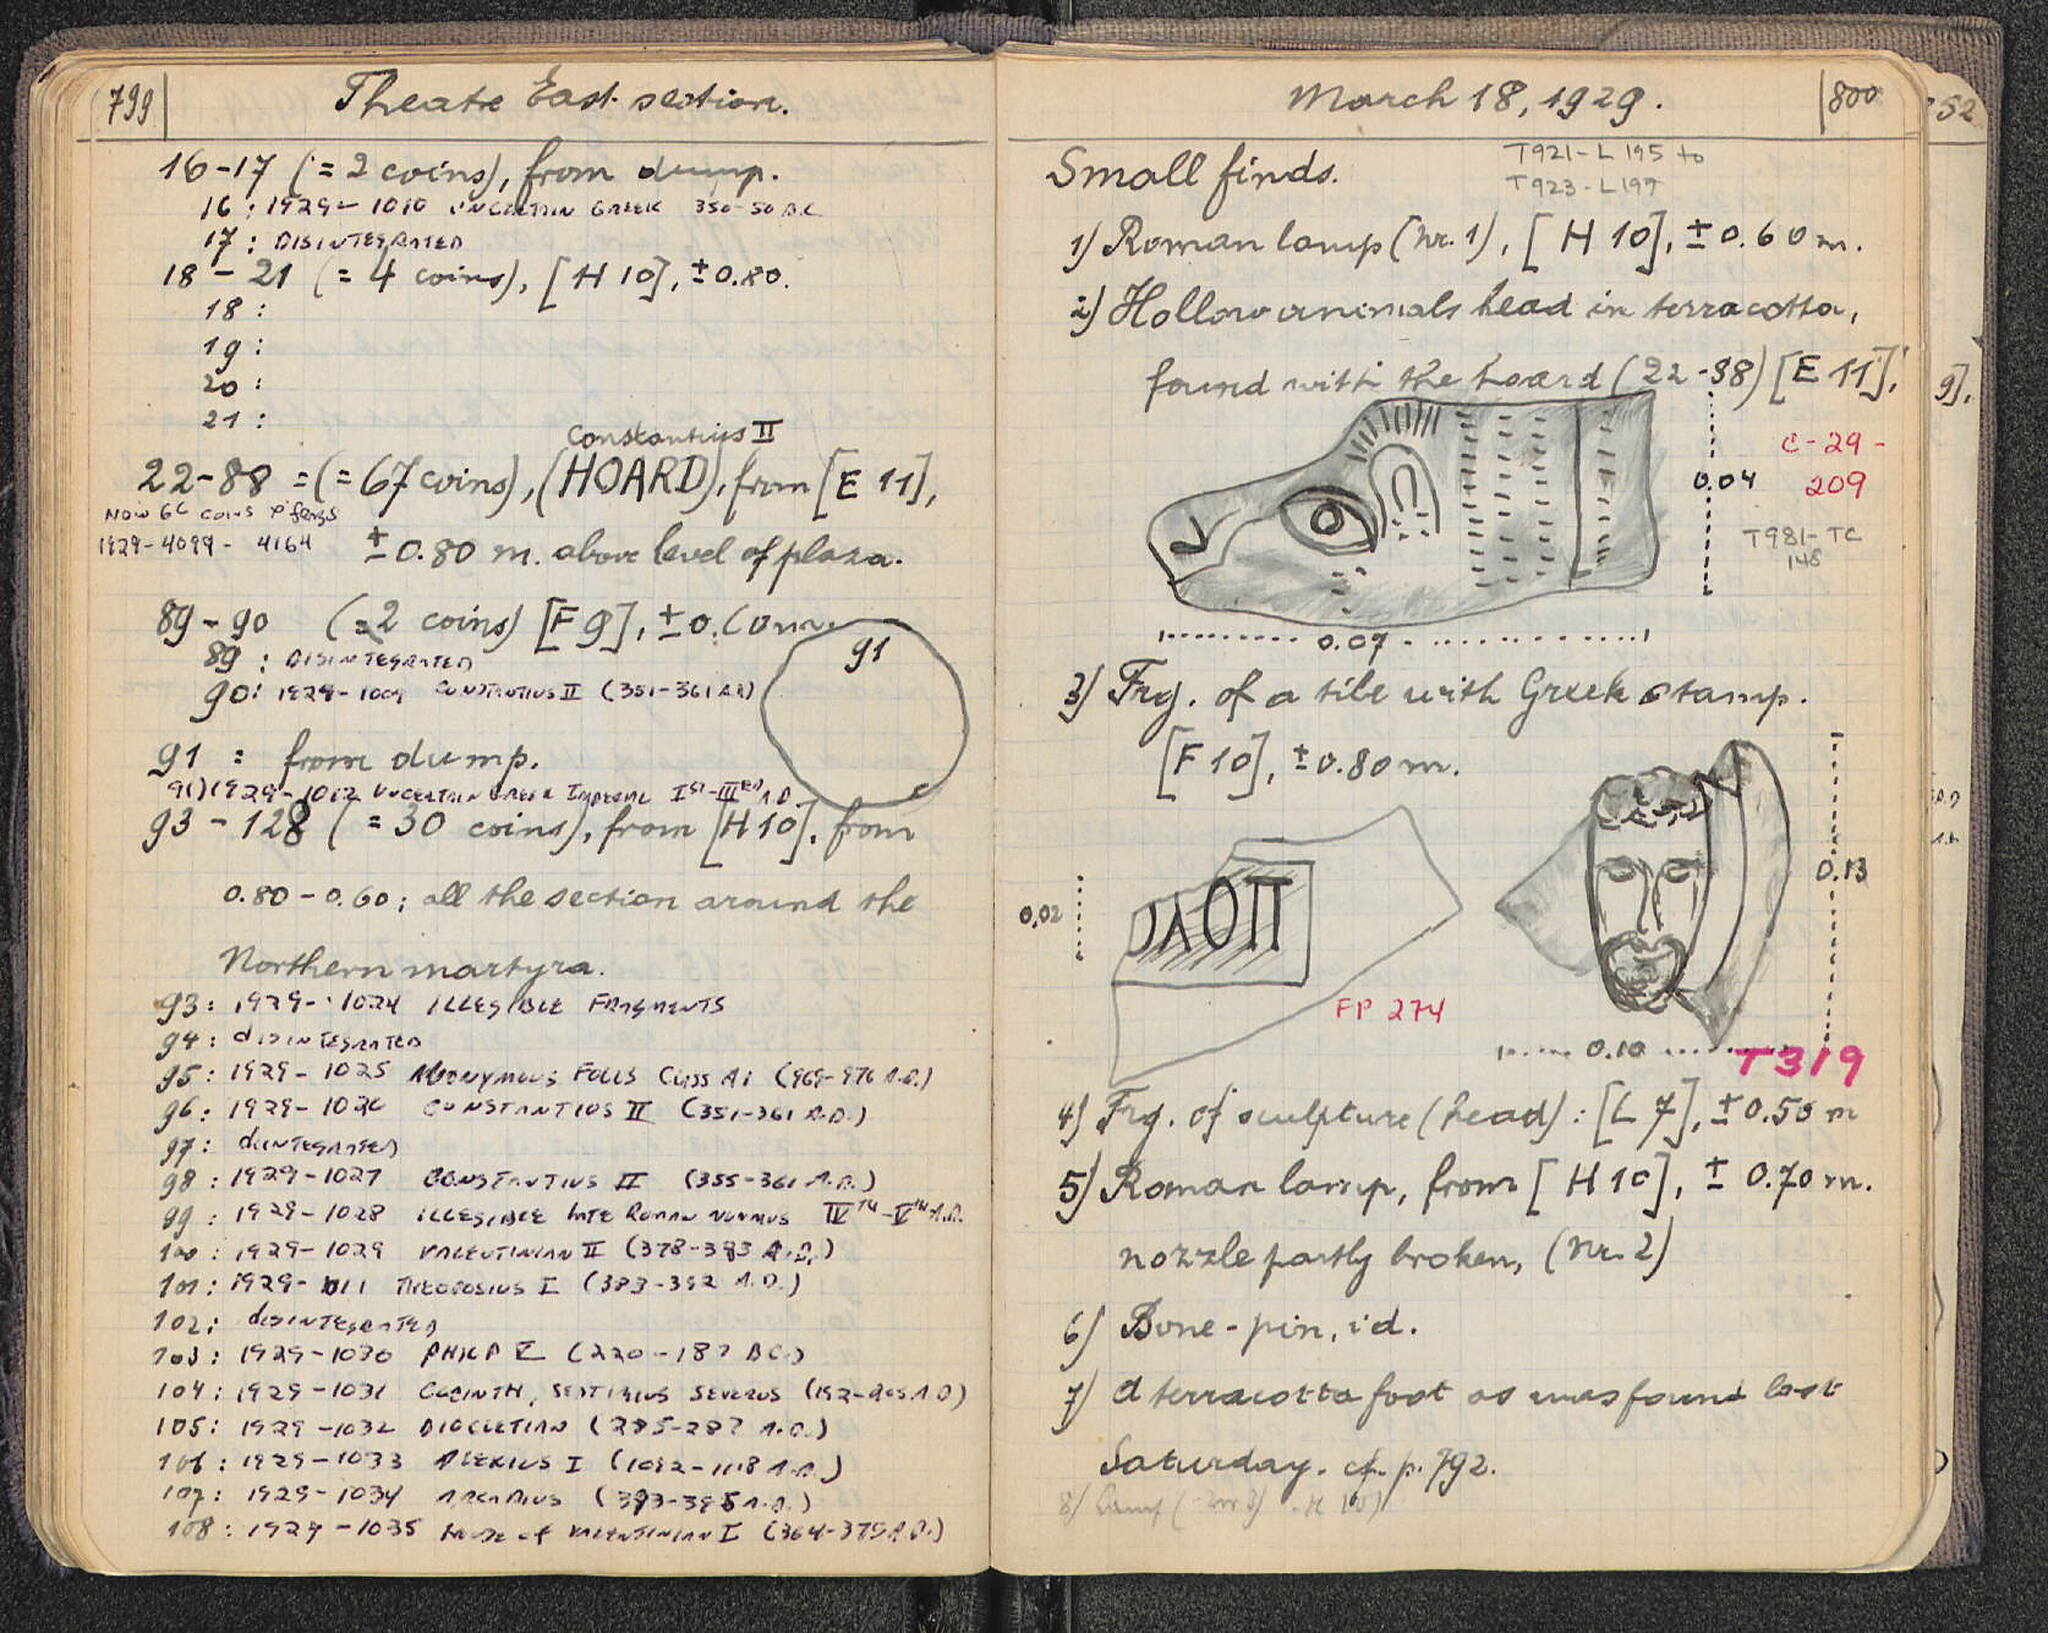 799
Theatre East. section.
16-17 (= 2 coins), from dump.
16: 1929- 1010 UNCERTAIN GREEK 350-50 B.C.
17: DISINTEGRATED
18 - 21 (= 4 coins), [H 10], ±0.80.
18:
19:
20:
21:
Constantius II
22-88 = (= 67 coins), (HOARD), from [E 11],
NOW 66 COINS & frags
1929-4099- 4164
±0.80 m. above level of plaza.
89-90 (= 2 coins) [F 9], ±0.60 m.
89: DISINTEGRATED
90: 1929-1009 CONSTANTIUS II (351-361 A.D.)
91
91 : from dump.
91) 1929-1012 UNCERTAIN GREEK IMPERIAL Iˢᵗ-IIIᴿᴰ A.D.
93 - 128 (= 30 coins), from [H 10], from
0.80 - 0.60; all the section around the
Northern martyra.
93: 1929- 1024 ILLEGIBLE FRAGMENTS
94: DISINTEGRATED
95: 1929- 1025 ANONYMOUS FOLLIS CLASS A1 (969-976 A.D.)
96: 1929- 1026 CONSTANTIUS II (351-361 A.D.)
97: DISINTEGRATED
98: 1929-1027 CONSTANTIUS II (355-361 A.D.)
99: 1929-1028 ILLEGIBLE LATE ROMAN NUMMUS IVᵀᴴ-Vᵀᴴ A.D.
100: 1929-1029 VALENTINIAN II (378-383 A.D.)
101: 1929-1011 THEODOSIUS I (383-392 A.D.)
102: DISINTEGRATED
103: 1929-1030 PHILIP V (220-187 B.C.)
104: 1929-1031 CORINTH, SEPTIMIUS SEVERUS
105: 1929-1032 DIOCLETIAN (285-287 A.D.)
106: 1929-1033 ALEXIUS I (1092-1118 A.D.)
107: 1929-1034 ARCADIUS (393-395 A.D.)
108: 1929-1035 HOUSE of VALENTINIAN I (364-375 A.D.)
March 18, 1929.
800
Small finds.
T921-L 195 to
T923-L197
1) Roman lamp (nr. 1), [H 10], ±0.60 m.
2) Hollow animals head in terracotta,
found with the hoard (22-88) [E 11],
C-29-
209
0.04
T981-TC
148
0.07
3) Frg. of a tile with Greek stamp.
[F 10], ±0.80 m.
0.02
ϽΛΟΠ
0.13
FP 274
0.10
T319
4) Frg. of sculpture (head): [L 7], ±0.50 m
5) Roman lamp, from [H 10], ± 0.70 m.
nozzle partly broken, (nr. 2)
6) Bone-pin, id.
7) A terracotta foot as was found last
Saturday. cf. p. 792.
8) Lamp (nr 3) . H 10)
52
9],